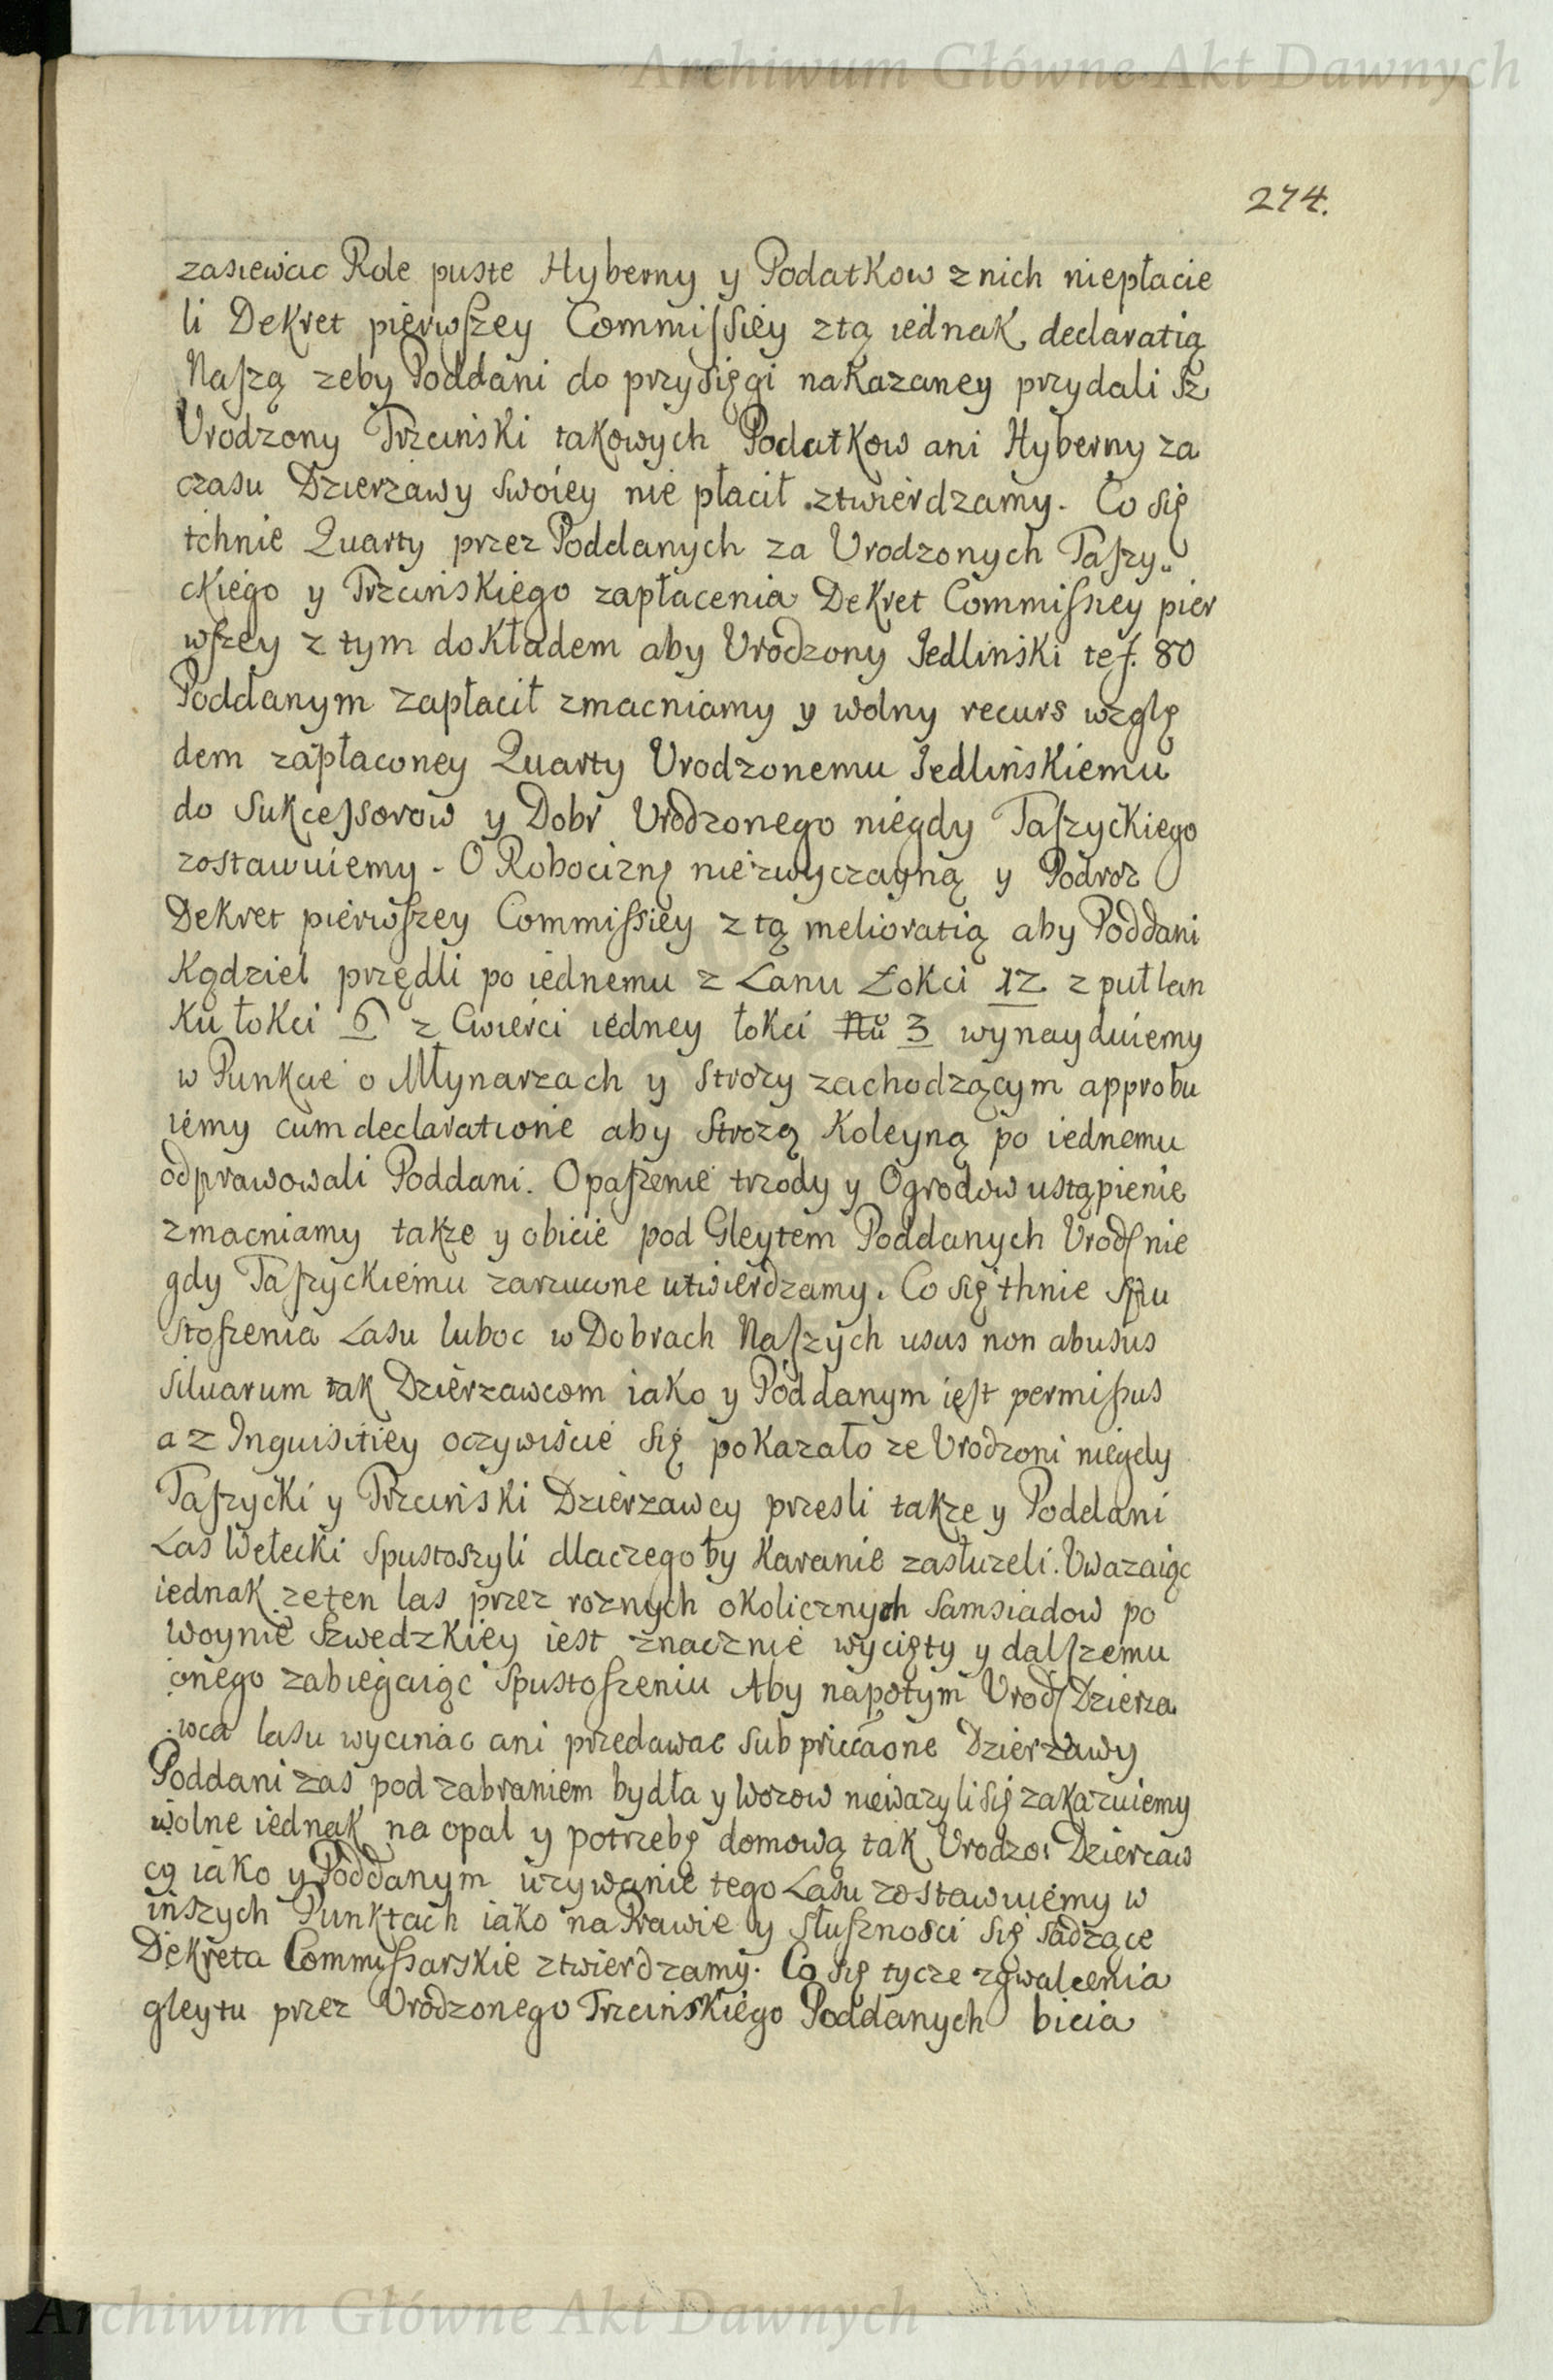 Archiwum Główne Akt Dawnych
274.
zasiewac Role puste Hyberny y Podatkow z nich niepłacie
li Dekret pierwszey Commissiey z tą iednak declaratią
Naszą zeby Poddani do przysięgi nakazaney przydali Sz
Vrodzony Trzcinski takowych Podatkow ani Hyberny za
czasu Dzierzawy swoiey nie płacił ztwierdzamy. Co się
tchnie Quarty przez Poddanych za Vrodzonych Taszy„
ckiego y Trzcinskiego zapłacenia Dekret Commissiey pier
wszey z tym dokładem aby Vrodzony Jedlinski tef. 80
Poddanym zapłacił zmacniamy y wolny recurs wzglę
dem zapłaconey Quarty Vrodzonemu Jedlińskiemu
do Sukcessorow y Dobr Vrodzonego niegdy Taszyckiego
zostawuiemy. O Robociznę niezwyczayną y Podroz
Dekret pierwszey Commissiey z tą melioratią aby Poddani
Kądziel przędli po iednemu z Lanu Łokci 12 z puł lan
ku łokci 6 z Cwierci iedney łokci Nu 3 wynayduiemy
w Punkcie o Młynarzach y Strozy zachodzącym approbu
iemy cum declaratione aby Strozą Koleyną po iednemu
odprawowali Poddani. Opaszenie trzody y Ogrodow ustąpienie
zmacniamy takze y obicie pod Gleytem Poddanych Vrodz nie
gdy Taszyckiemu zarzucone utwierdzamy. Co się thnie Spu
stoszenia Lasu luboc w Dobrach Naszych usus non abusus
siluarum tak Dzierzawcom iako y Poddanym iest permissus
a z Inquisitiey oczywiscie się pokazało ze Vrodzoni niegdy
Taszycki y Trzcinski Dzierzawcy przesli takze y Poddani
Las Wełecki Spustoszyli dlaczego by Karanie zasłuzeli. Vwazaiąc
iednak ze ten las przez roznych okolicznych Samsiadow po
Woynie Szwedzkiey iest znacznie wycięty y dalszemu
onego zabiegaiąc Spustoszeniu Aby napotym Vrodz Dzierza
wca lasu wycinac ani przedawac sub priuaone Dzierzawy
Poddani zas pod zabraniem bydła y Wozow niewazyli się zakazuiemy
wolne iednak na opal y potrzebę domową tak Vrodzo: Dzierzaw
cą iako y Poddanym uzywanie tego Lasu zostawuiemy w
inszych Punktach iako na Prawie y słusznosci się sadzące
Dekreta Commissarskie ztwierdzamy. Co się tycze zgwalcenia
gleytu przez Vrodzonego Trzcinskiego Poddanych bicia
Archiwum Główne Akt Dawnych